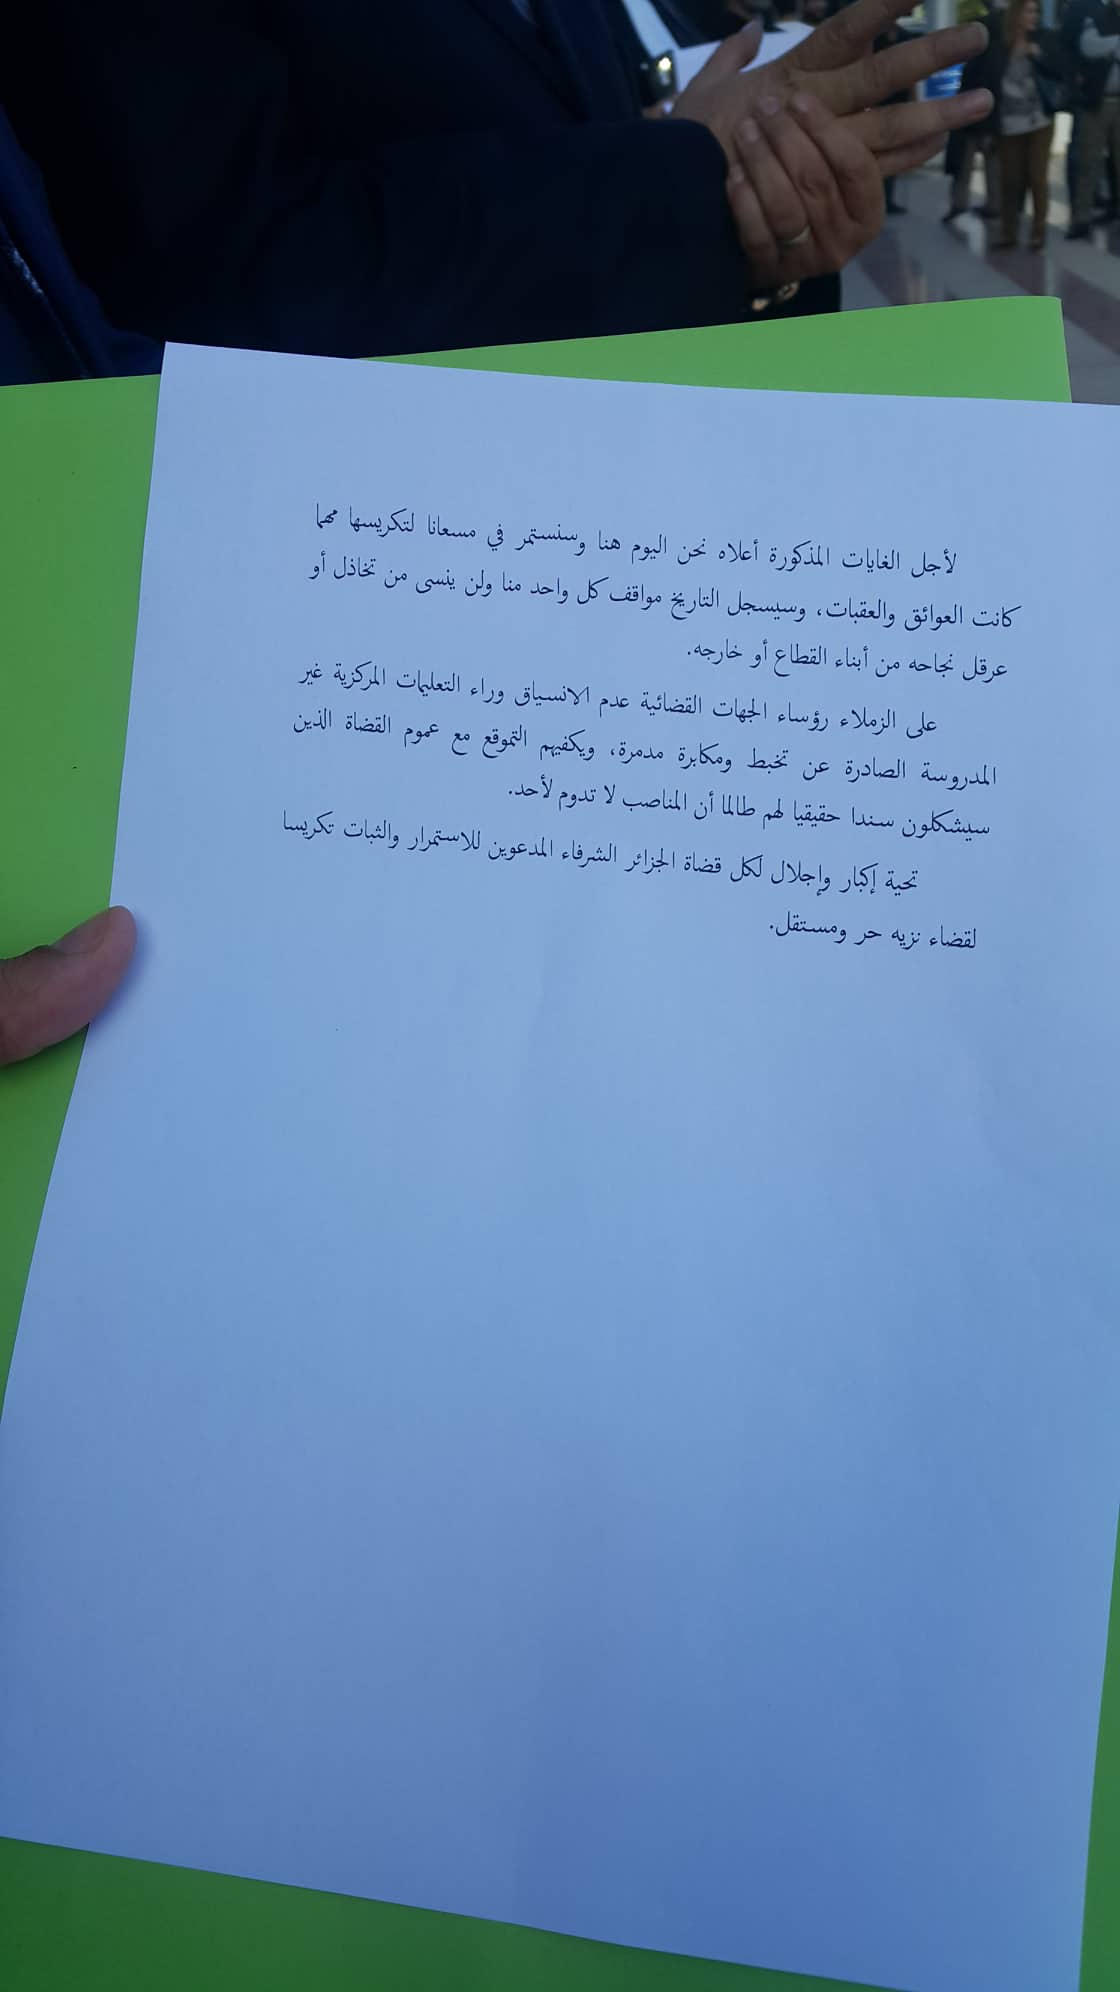 لأجل الغايات المذكورة أعلاه نحن اليوم هنا وسنستمر في مسعانا لتكريسها مهما
كانت العوائق والعقبات، وسيسجل التاريخ مواقف كل واحد منا ولن ينسى من تخاذل أو
عرقل نجاحه من أبناء القطاع أو خارجه.
على الزملاء رؤساء الجهات القضائية عدم الانسياق وراء التعليمات المركزية غير
المدروسة الصادرة عن تخبط ومكابرة مدمرة، ويكفيهم التموقع مع عموم القضاة الذين
سيشكلون سندا حقيقيا لهم طالما أن المناصب لا تدوم لأحد.
تحية إكبار وإجلال لكل قضاة الجزائر الشرفاء المدعوين للاستمرار والثبات تكريسا
لقضاء نزيه حر ومستقل.